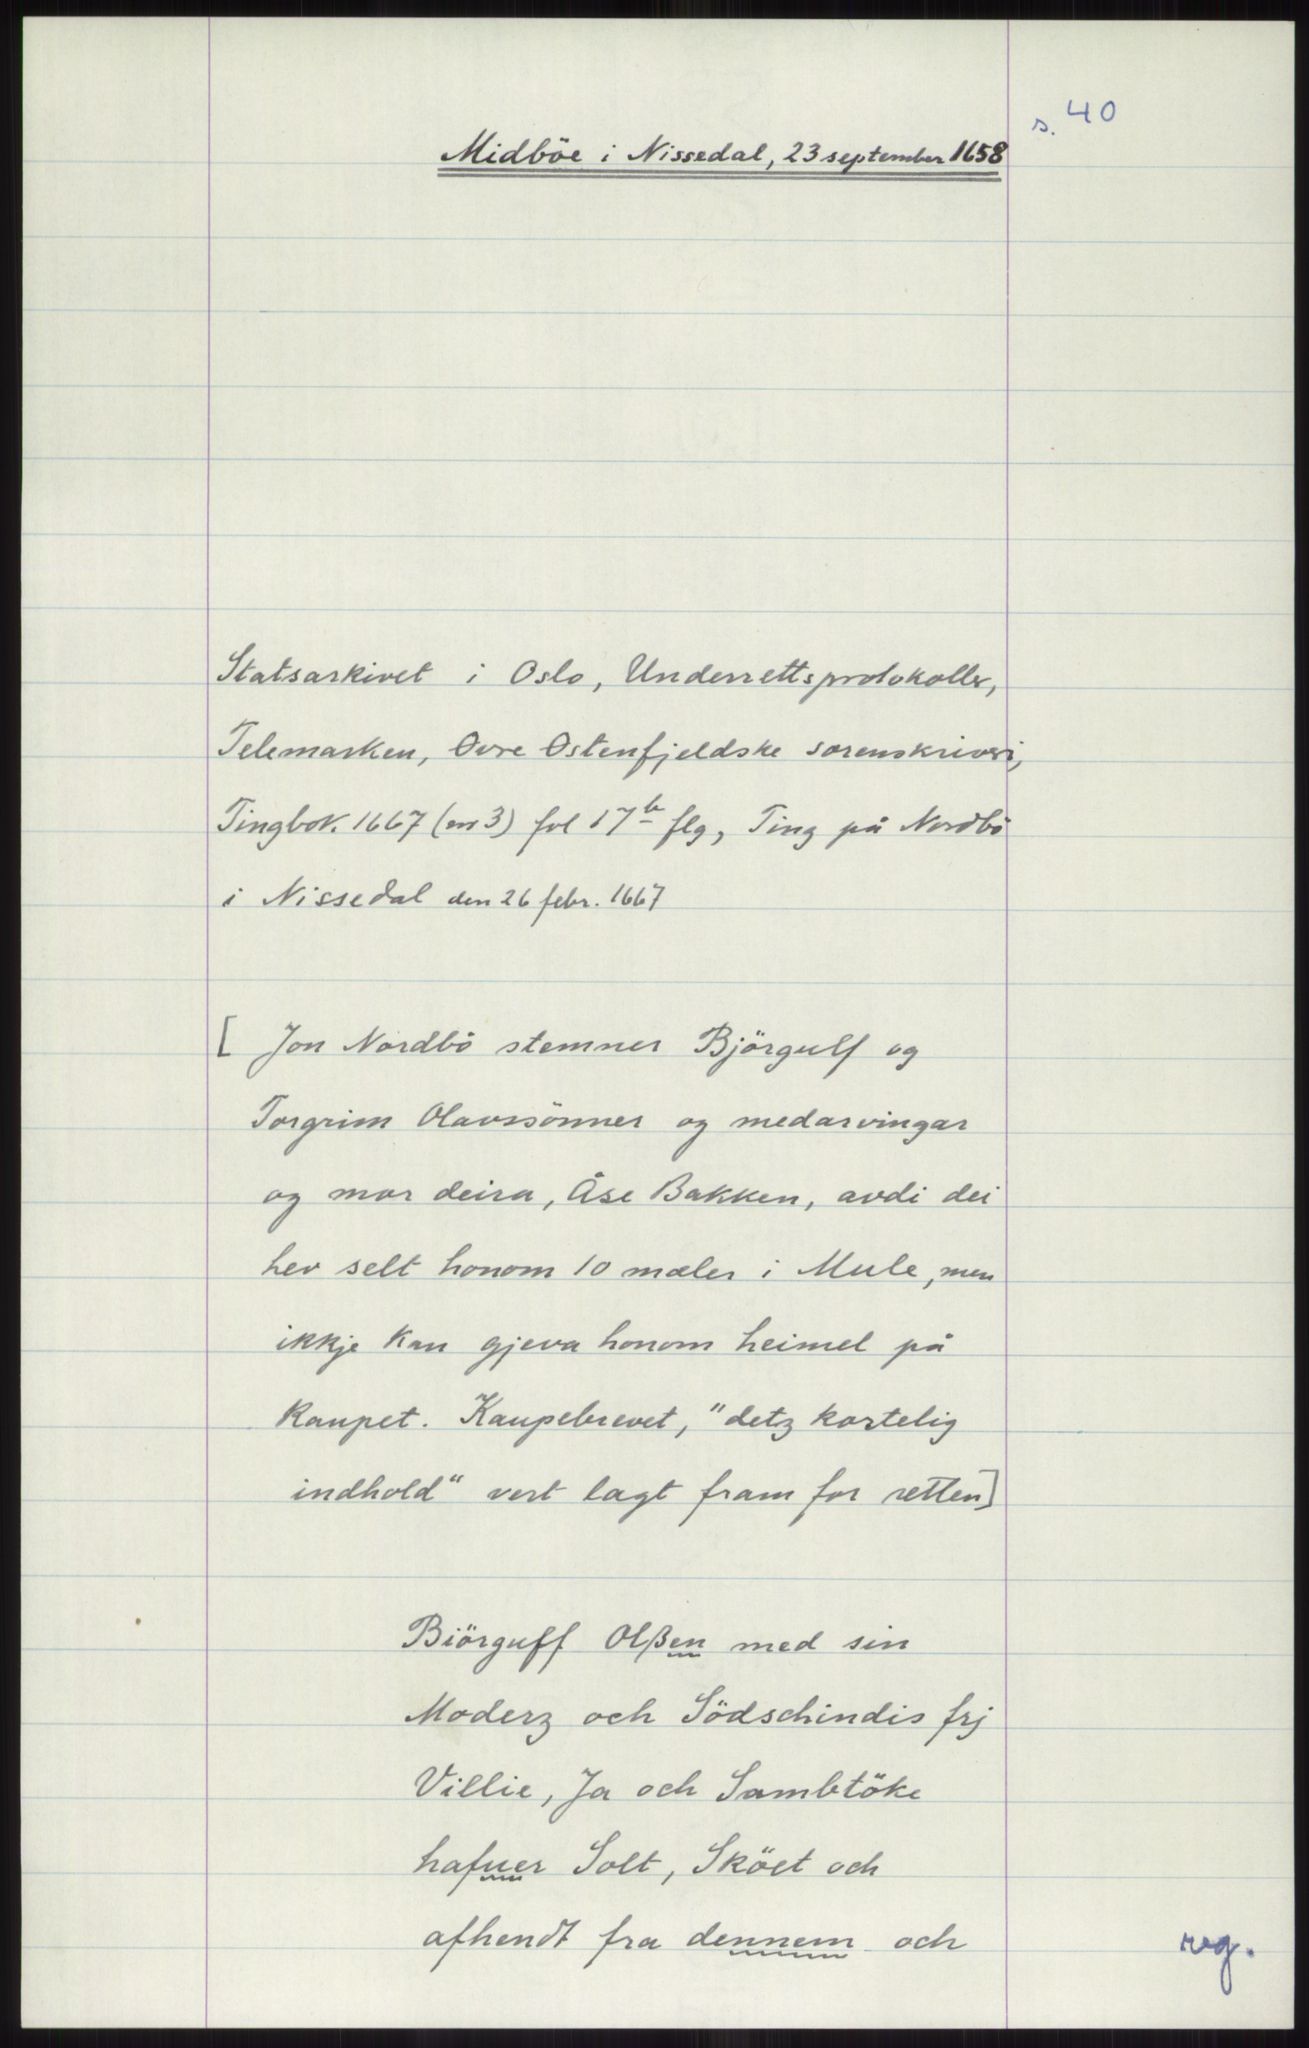 s. 40
Midböe i Nissedal, 23 september 1658
Statsarkivet i Oslo, Underrettsprotokoller,
Telemarken, Övre Östenfjeldske sorenskriveri,
Tingbok. 1667 (nr 3) fol 17b flg, Ting på Nordbö
i Nissedal den 26 febr. 1667
[ Jon Nordbö stemner Björgulf og
Torgrim Olavssönner og medarvingar
og mor deira, Åse Bakken, avdi dei
hev selt honom 10 mæler i Mule, men
ikkje kan gjeva honom heimel på
kaupet. Kaupebrevet, "detz kortelig
indhold" vert lagt fram for retten]
Biörguff Olßen med sin
Moderz och Södschindis frj
Villie, Ja och Sambtöke
hafuer Solt, Sköet och
afhendt fra dennem och
reg.